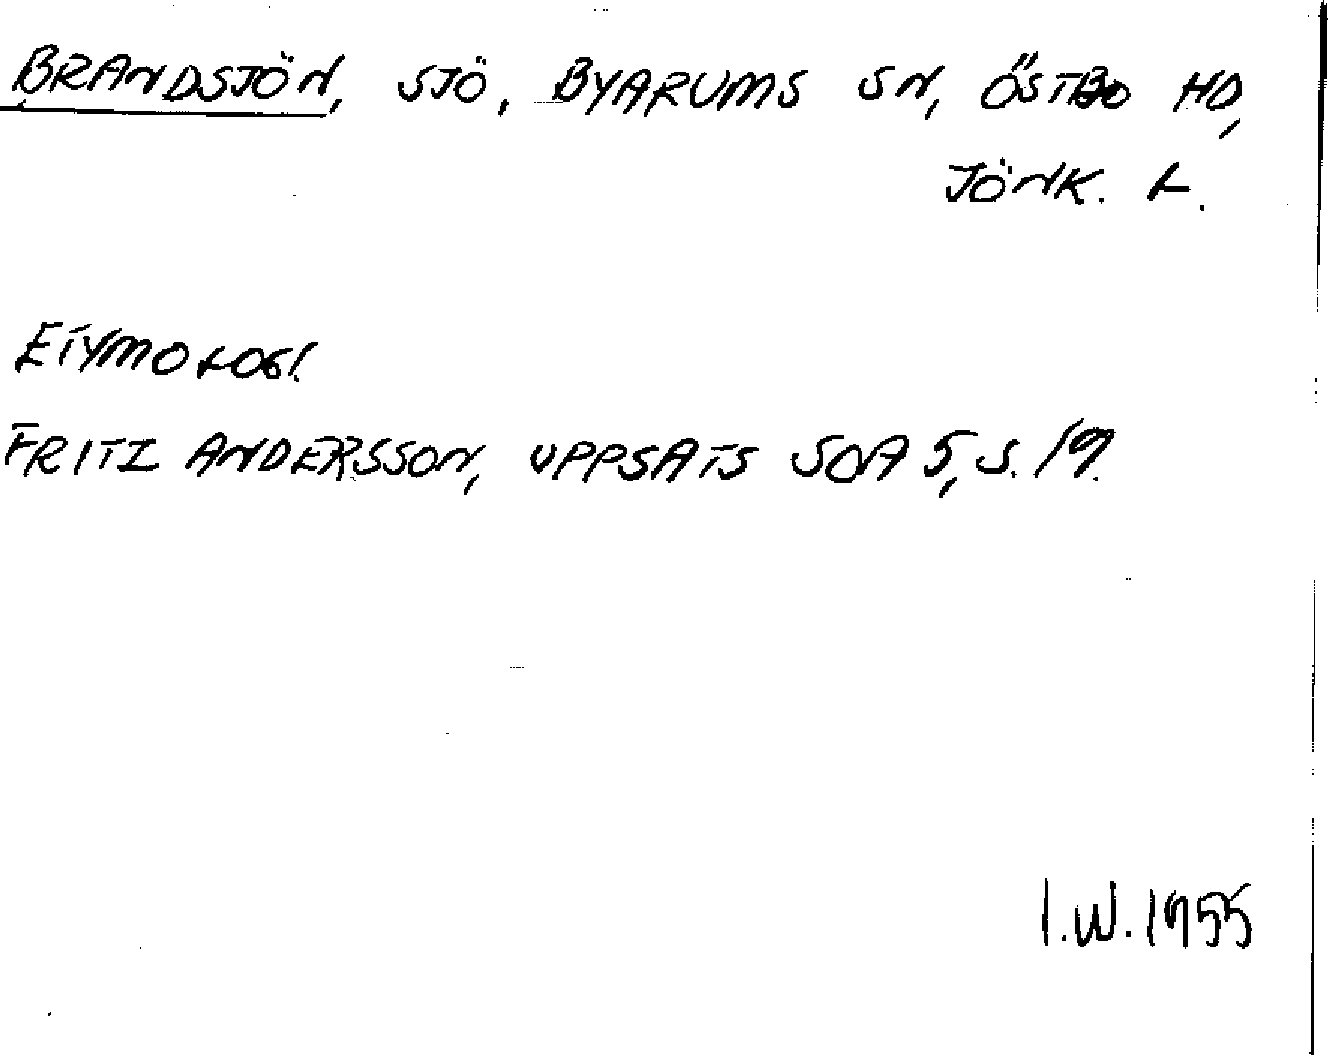 BRANDSJÖN, SJÖ, BYARUMS SN, ÖSTBO HD,
JÖNK. L.
ETYMOLOGI.
FRITZ ANDERSSON, UPPSATS SOA 5, S. 19.
I.W. 1955